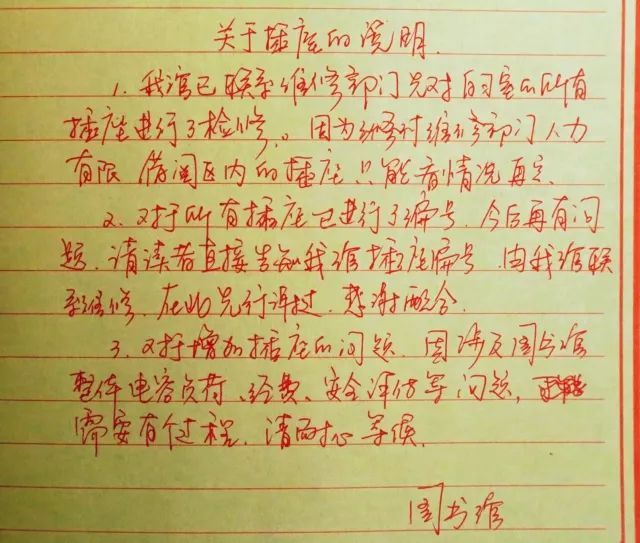 关于插座的说明.
1. 我馆已联系维修部门先对自习室的所有
插座进行了检修。因为维修部门人力
有限 借阅区内的插座只能看情况再定.
2. 对于所有插座已进行了编号. 今后再有问
题. 请读者直接告知我馆插座编号. 由我馆联
系维修. 在此先行谢过. 感谢配合.
3. 对于增加插座的问题. 因涉及图书馆
整体电容负荷、经费、安全评估等问题,
需要有个过程. 请耐心等候.
图书馆